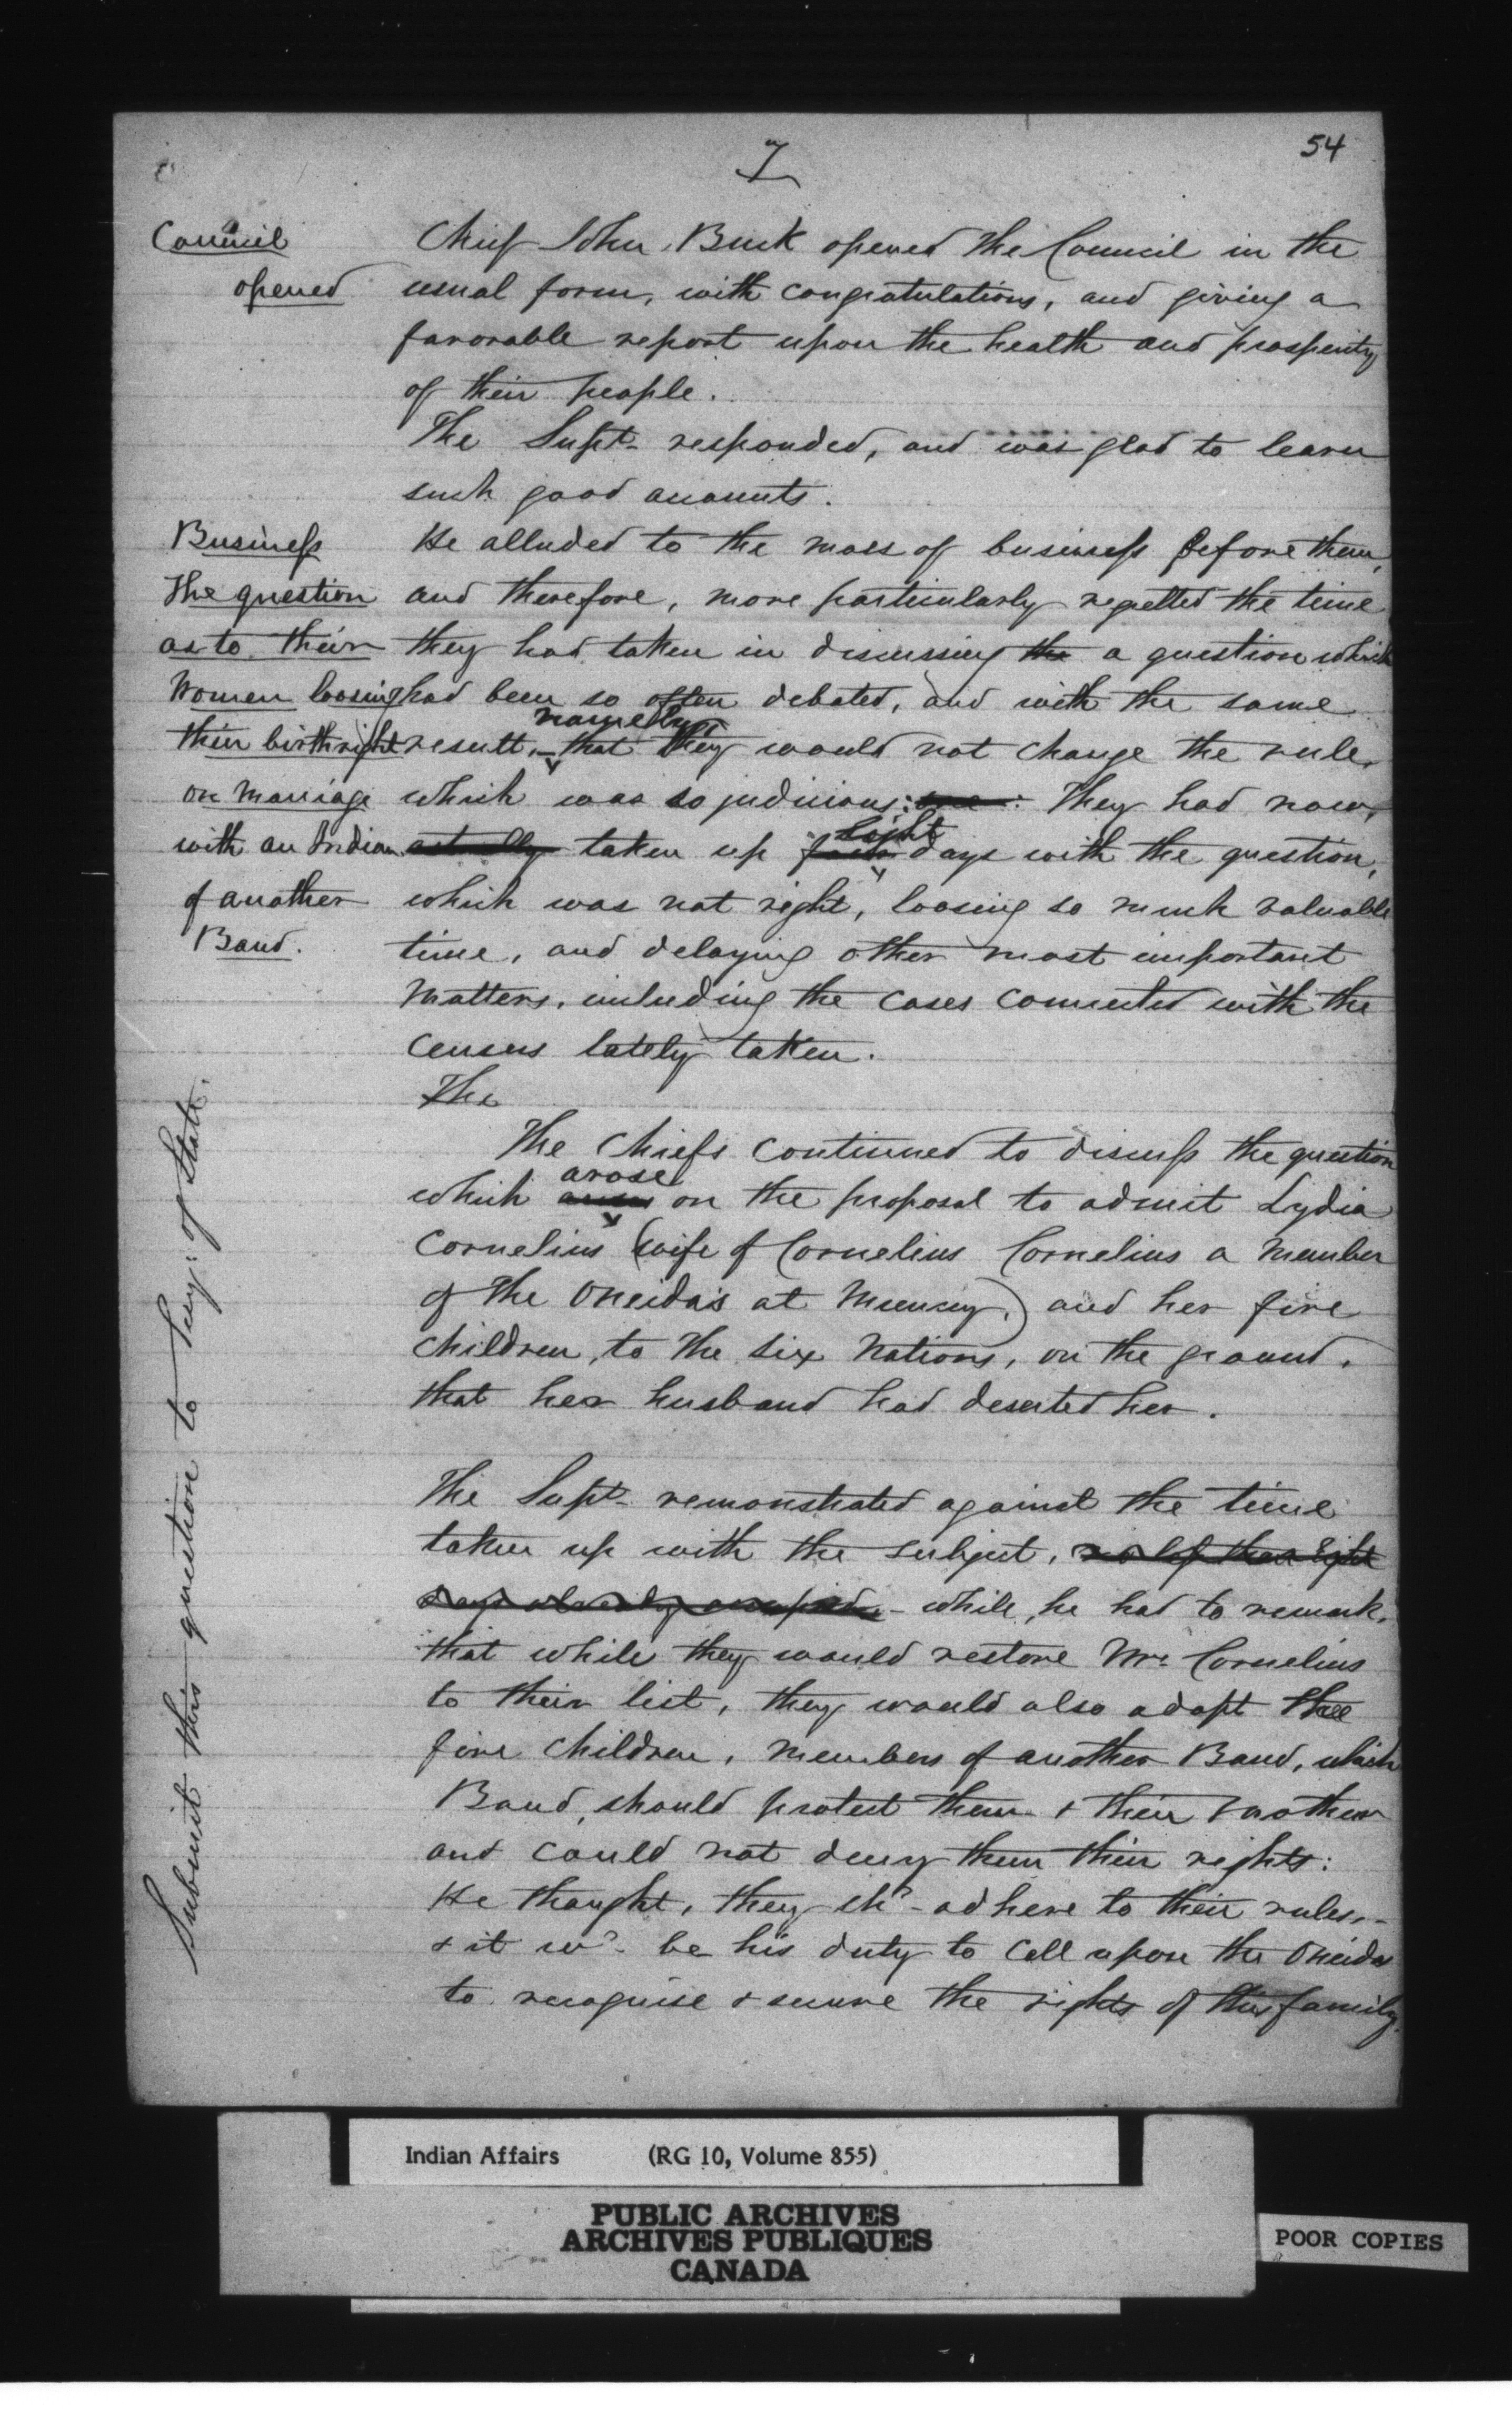 7
54
Council
opened
Chief John Buck opened the Council in the
usual form, with congratulations, and giving a
favorable report upon the health and prosperity
of their people.
The Supt. responded, and was glad to learn
such good accounts.
Business
The question
as to their
Women loosing
their birthright
on Marriage
with an Indian
of another
Band.
He alluded to the mass of business before them,
and therefore, more particularly regretted the time
they had taken in discussing the a question which
had been so often debated, and with the same
result, namely, that they would not change the rule,
which was so judicious: They had now,
actually taken up eight days with the question,
which was not right, loosing so much valuable
time, and delaying other most important
Matters, including the cases connected with the
Census lately taken.
The
The Chiefs continued to discuss the question
which arose on the proposal to admit Lydia
Cornelius (wife of Cornelius Cornelius a Member
of the Oneida's at Muncey,) and her five
Children, to the Six Nations, on the ground,
that her husband had deserted her.
The Supt. remonstrated against the time
taken up with the subject, no less than Eight
days already occupied - while, he had to remark,
that while they would restore Mrs. Cornelius
to their list, they would also adopt
five Children, Members of another Band, which
Band, should protect them & their mother
and could not deny them their rights:
He thought, they shd. adhere to their rules,
& it wd. be his duty to call upon the Oneidas
to recognise & secure the rights of this family.
Submit this question to Secy: of State.
Indian Affairs (RG 10, Volume 855)
PUBLIC ARCHIVES
ARCHIVES PUBLIQUES
CANADA
POOR COPIES